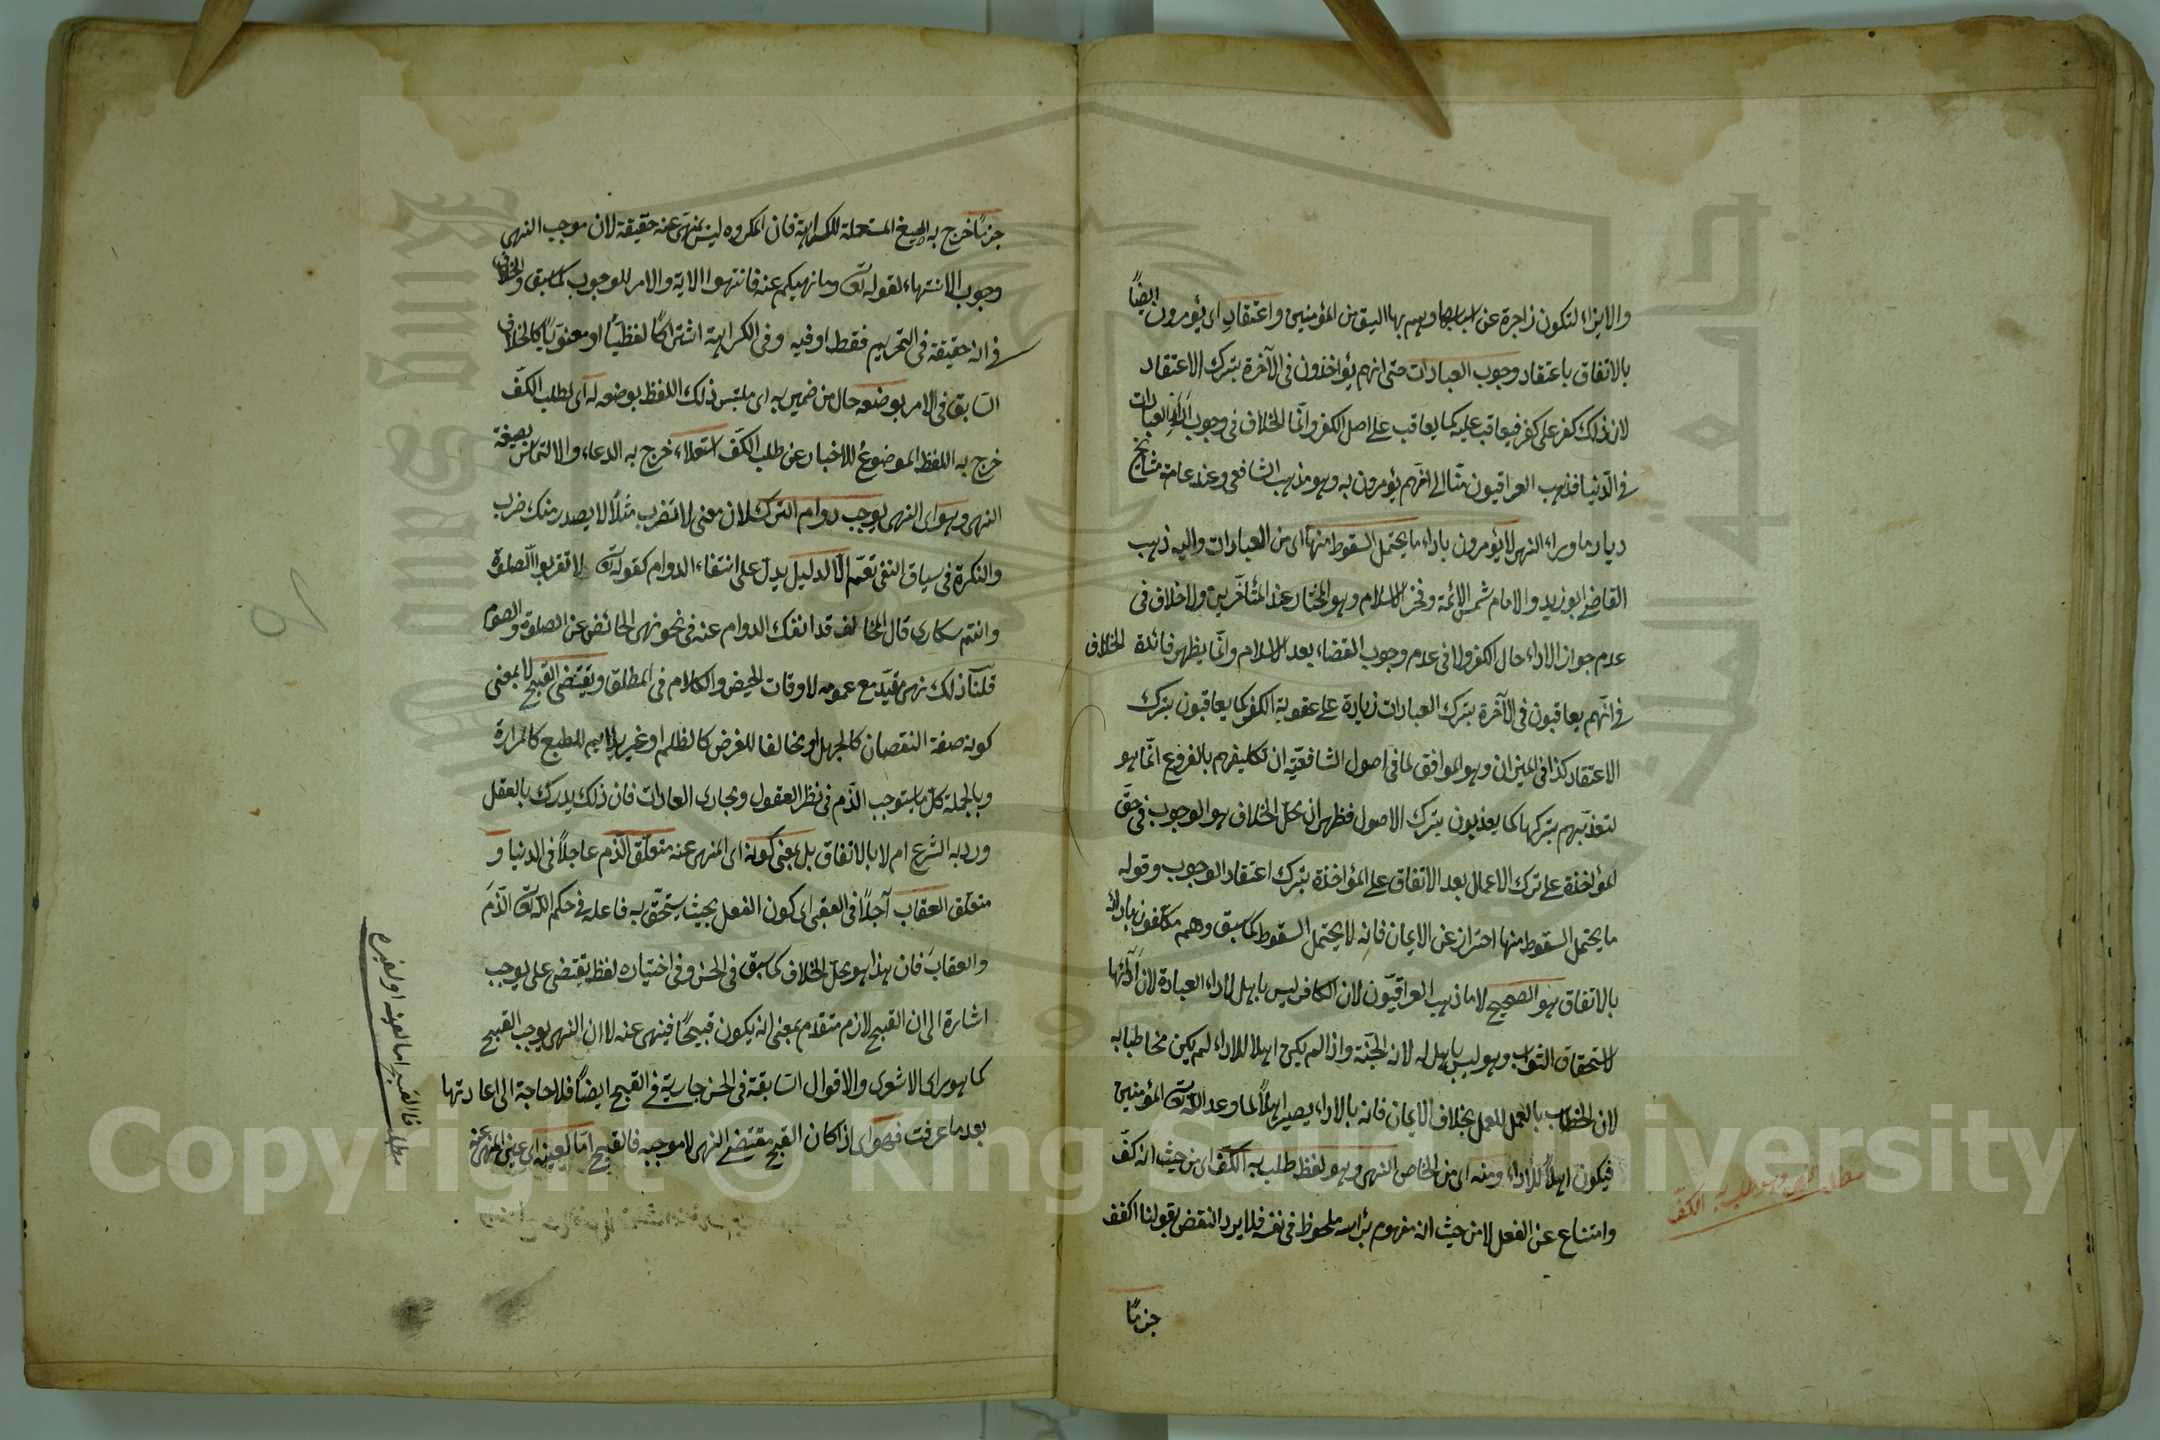 والايذاء لتكون زاجرة عن اسبابها وهم بها اليق من المؤمنين واعتقاد اى يؤمرون ايضاً
بالاتفاق باعتقاد وجوب العبادات حتى انهم يؤاخذون فى الآخرة بترك الاعتقاد
لان ذلك كفر على كفر فيعاقب عليه كما يعاقب على اصل الكفر وانّما الخلاف فى وجوب اداء العبادات
فى الدّنيا فذهب العراقيون منّا الى انّهم يؤمرون به وهو مذهب الشافعى وعند عامة مشايخ
ديار ما وراء النهر لا يؤمرون باداء ما يحتمل السقوط منها اى من العبادات واليه ذهب
القاضى ابو زيد والامام شمس الائمة وفخر الاسلام وهو المختار عند المتأخّرين ولا خلاف فى
عدم جواز الاداء حال الكفر ولا فى عدم وجوب القضاء بعد الاسلام وانّما يظهر فائدة الخلاف
فى انّهم يعاقبون فى الآخرة بترك العبادات زيادة على عقوبة الكفر كما يعاقبون بترك
الاعتقاد كذا فى الميزان وهو الموافق لما فى اصول الشافعيّة ان تكليفهم بالفروع انّما هو
لتعذيبهم بتركها كما يعذبون بترك الاصول فظهر ان محلّ الخلاف هو الوجوب فى حقّ
المؤاخذة على ترك الاعمال بعد الاتفاق على المؤاخذة بترك اعتقاد الوجوب وقوله
ما يحتمل السقوط منها احتراز عن الايمان فانه لا يحتمل السقوط كما سبق وهم مكلّفون بادائه
بالاتفاق هو الصحيح لا ما ذهب العراقيّون لان الكافر ليس باهل لاداء العبادة لانّ ادائها
لاستحقاق الثواب وهو ليس باهل له لانه الجنّة واذا لم يكن اهلا للاداء لم يكن مخاطبا به
لان الخطاب بالعمل للعمل بخلاف الايمان فانه بالاداء يصير اهلاً لما وعد الله تعالى المؤمنين
فيكون اهلاً للاداء ومنه اى من الخاص النهى وهو لفظ طلب به الكفّ اى من حيث انه كفّ
وامتناع عن الفعل لا من حيث انه مفهوم برأسه ملحوظ فى نفسه فلا يرد النقض بقولنا اكفف
جزماً
مطلب النهى وهو طلب به الكفّ
جزماً خرج به الصيغ المستعملة للكراهة فان المكروه ليس بمنهىّ عنه حقيقة لان موجب النهى
وجوب الانتهاء لقوله تعالى وما نهيكم عنه فانتهوا الاية والامر للوجوب كما سبق والخلاف
فى انه حقيقة فى التحريم فقط او فيه وفى الكراهة اشتراكاً لفظيّاً او معنويّاً كالخلاف
السّابق فى الامر بوضعه حال من ضمير به اى ملتبس ذلك اللفظ بوضعه له اى لطلب الكفّ
خرج به اللفظ الموضوع للاخبار عن طلب الكفّ استعلاء خرج به الدعاء والالتماس بصيغة
النهى وهو اى النهى يوجب دوام الترك لان معنى لا تضرب مثلاً لا يصدر منك ضرب
والنكرة فى سياق النفى تعمّ الّا لدليل يدلّ على انتفاء الدوام كقوله تعالى لا تقربوا الصلوة
وانتم سكارى قال المخالف قد انفك الدوام عنه فى نحو نهى الحائض عن الصلوة والصوم
قلنا ذلك نهى مقيّد مع عمومه لاوقات الحيض والكلام فى المطلق ويقتضى القبح لا بمعنى
كونه صفة النقصان كالجهل او مخالفا للغرض كالظلم او غير ملايم للطبع كالمرارة
وبالجملة كلّ ما يستوجب الذّم فى نظر العقول ومجارى العادات فان ذلك يدرك بالعقل
ورد به الشرع ام لا بالاتفاق بل بمعنى كونه اى المنهى عنه متعلّق الذّم عاجلاً فى الدنيا و
متعلّق العقاب آجلاً فى العقبى اى كون الفعل بحيث يستحقّ به فاعله فى حكم الله تعالى الذّمَ
والعقابَ فان هذا هو محلّ الخلاف كما سبق فى الحسن وفى اختياره لفظ يقتضى على يوجب
اشارة الى ان القبح لازم متقدم بمعنى انه يكون قبيحاً فينهى عنه لا ان النهى يوجب القبح
كما هو رأى الاشعرى والاقوال السّابقة فى الحسن جارية فى القبح ايضاً فلا حاجة الى اعادتها
بعد ما عرفت فهو اى اذا كان القبح مقتضى النهى لا موجبه فالقبح امّا لعينه اى عين المنهى عنه
مطلب فالقبح اما لعينه او لغيره
Copyright © King Saud University